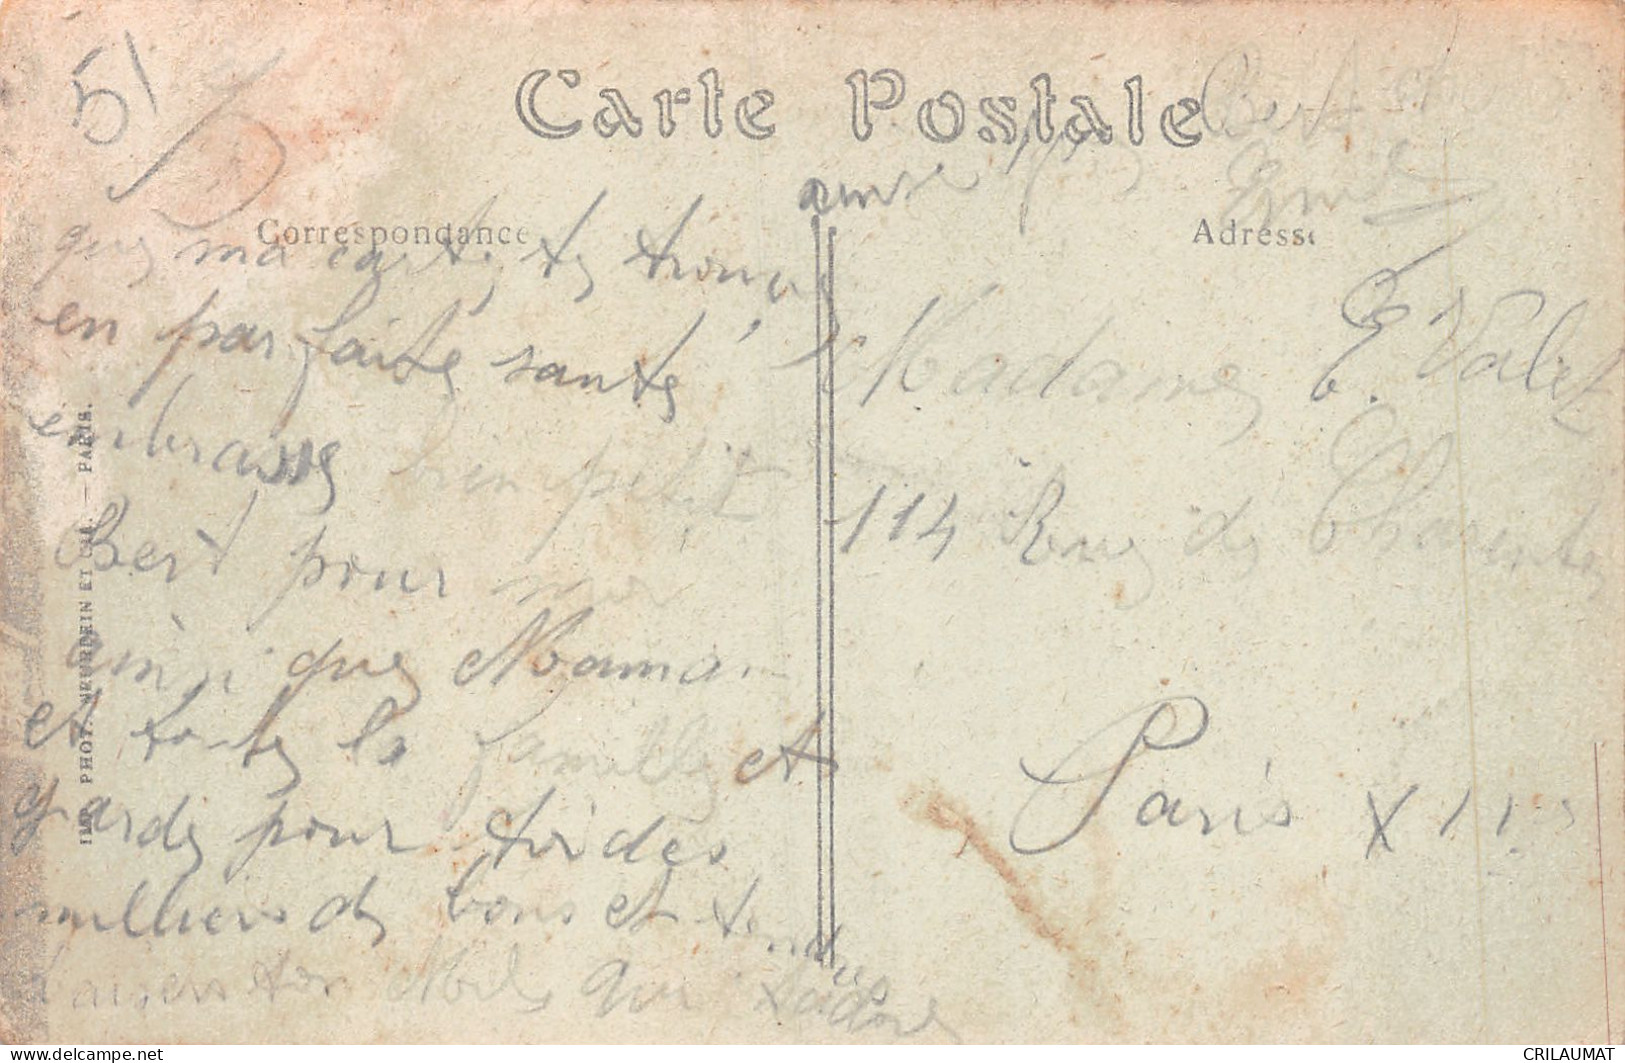 51
Carte Postale
Correspondance
Adresse
que ma carte te trouve
en parfaite santé
embrasse bien petit
Bert pour moi
ainsi que Maman
et toute la famille et
garde pour toi des
milliers de bons et tendres
baisers ton Mile qui t'adore
ainsi que
Bert
Emile
Madame E. Valet
114 Rue de Charenton
Paris XII
IMP. PHOT. NEURDEIN ET CIE. — PARIS.
CRILAUMAT